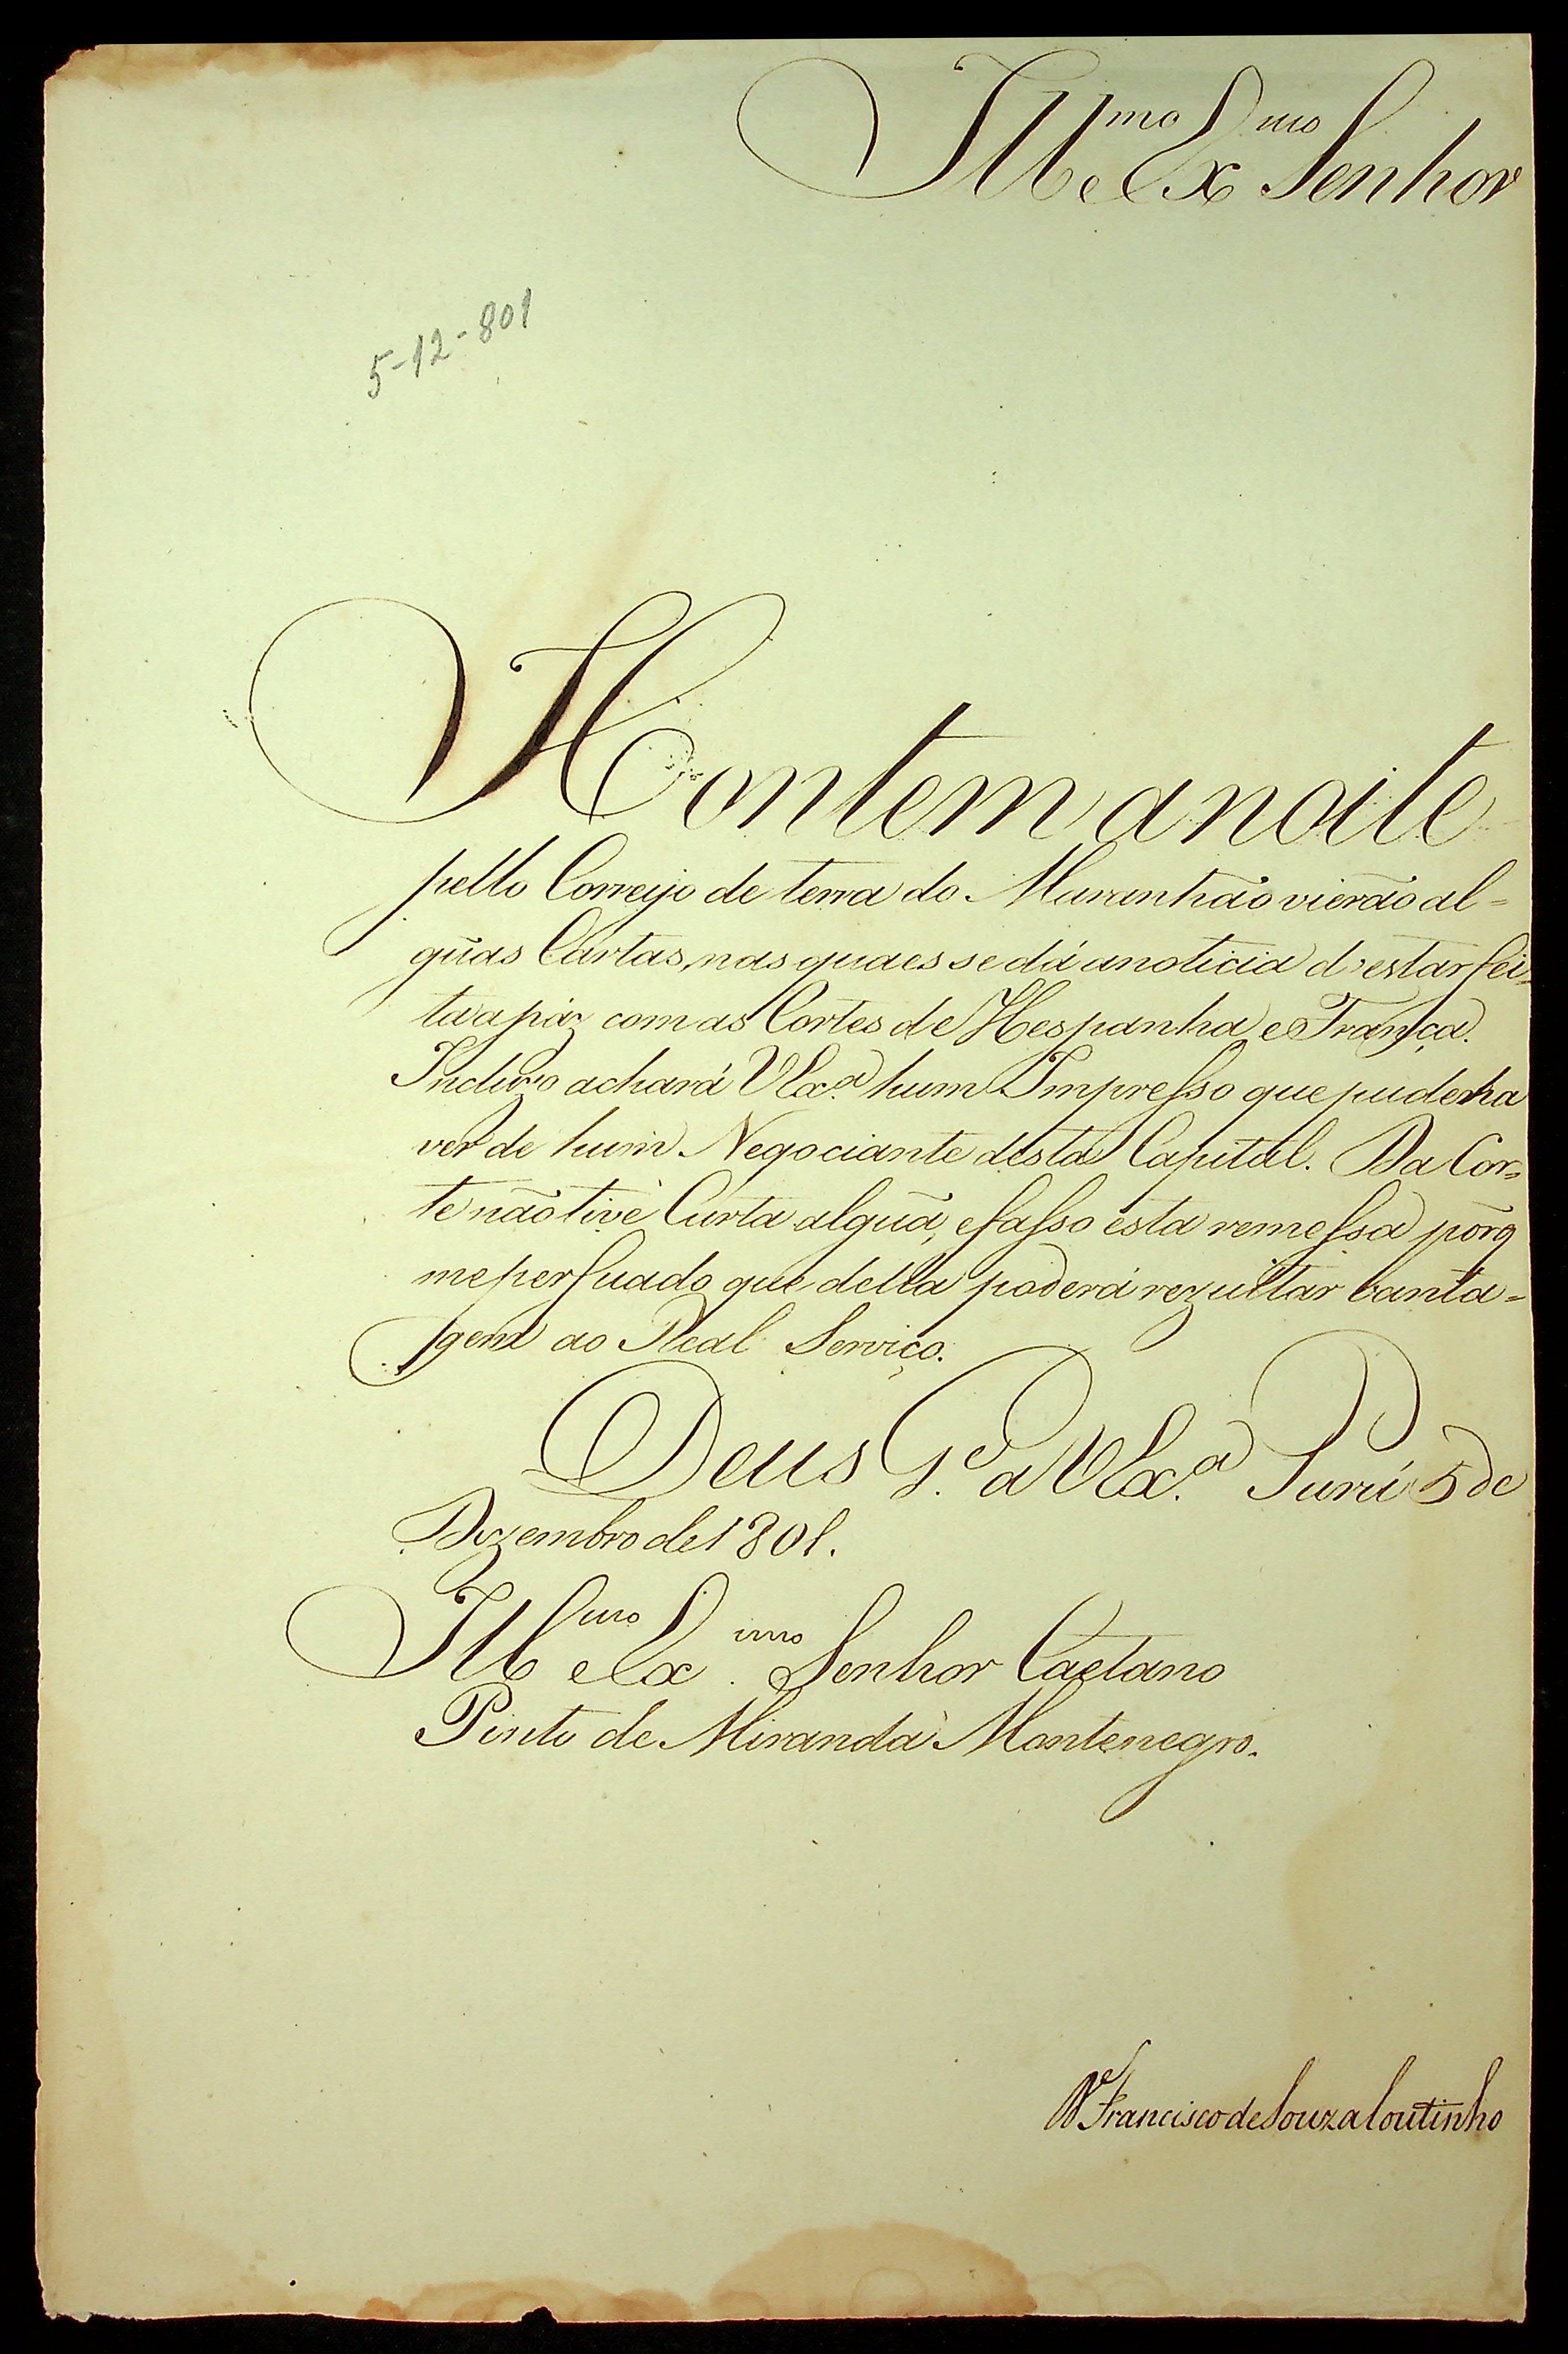 Ill.mo e Ex.mo Senhor
5-12-801
Hontem a noite
pello Correyo de terra do Maranhão vierão al=
guãs Cartas, nas quaes se dá a noticia d'estar fei=
ta a páz com as Cortes de Hespanha e França.
Incluzo achará V Ex.ª hum Impresso que pude ha
ver de hum Negociante desta Capital. Da Cor=
te não tive Carta alguã, e fasso esta remessa porq̃
me persuado que della poderá rezultar vanta=
gem ao Real Serviço.
Deus G.e a V Ex.ª Pará 5 de
Dezembro de 1801.
Ill.mo e Ex.mo Senhor Caetano
Pinto de Miranda Montenegro.
Francisco de Souza Coutinho